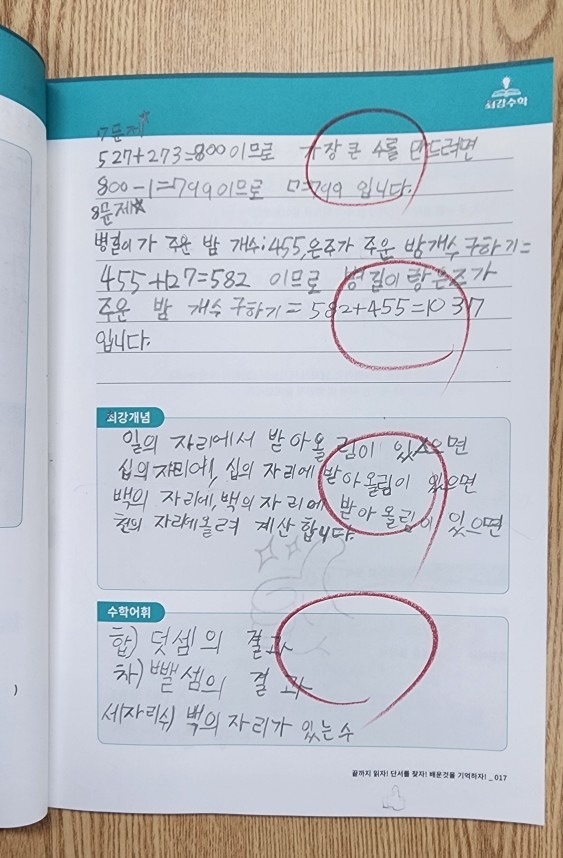 최강수학
7문제
527+273=800이므로 가장 큰 수를 만드려면
800-1=799이므로 □=799 입니다.
8문제
병길이가 주운 밤 개수:455, 은주가 주운 밤 개수 구하기=
455+127=582 이므로 병길이랑 은주가
주운 밤 개수 구하기=582+455=1037
입니다.
최강개념
일의 자리에서 받아올림이 있으면
십의 자리에, 십의 자리에 받아올림이 있으면
백의 자리에, 백의 자리에 받아올림이 있으면
천의 자리에 올려 계산합니다.
수학어휘
합) 덧셈의 결과
차) 뺄셈의 결과
세자리수) 백의 자리가 있는 수
끝까지 읽자! 단서를 찾자! 배운것을 기억하자! _ 017